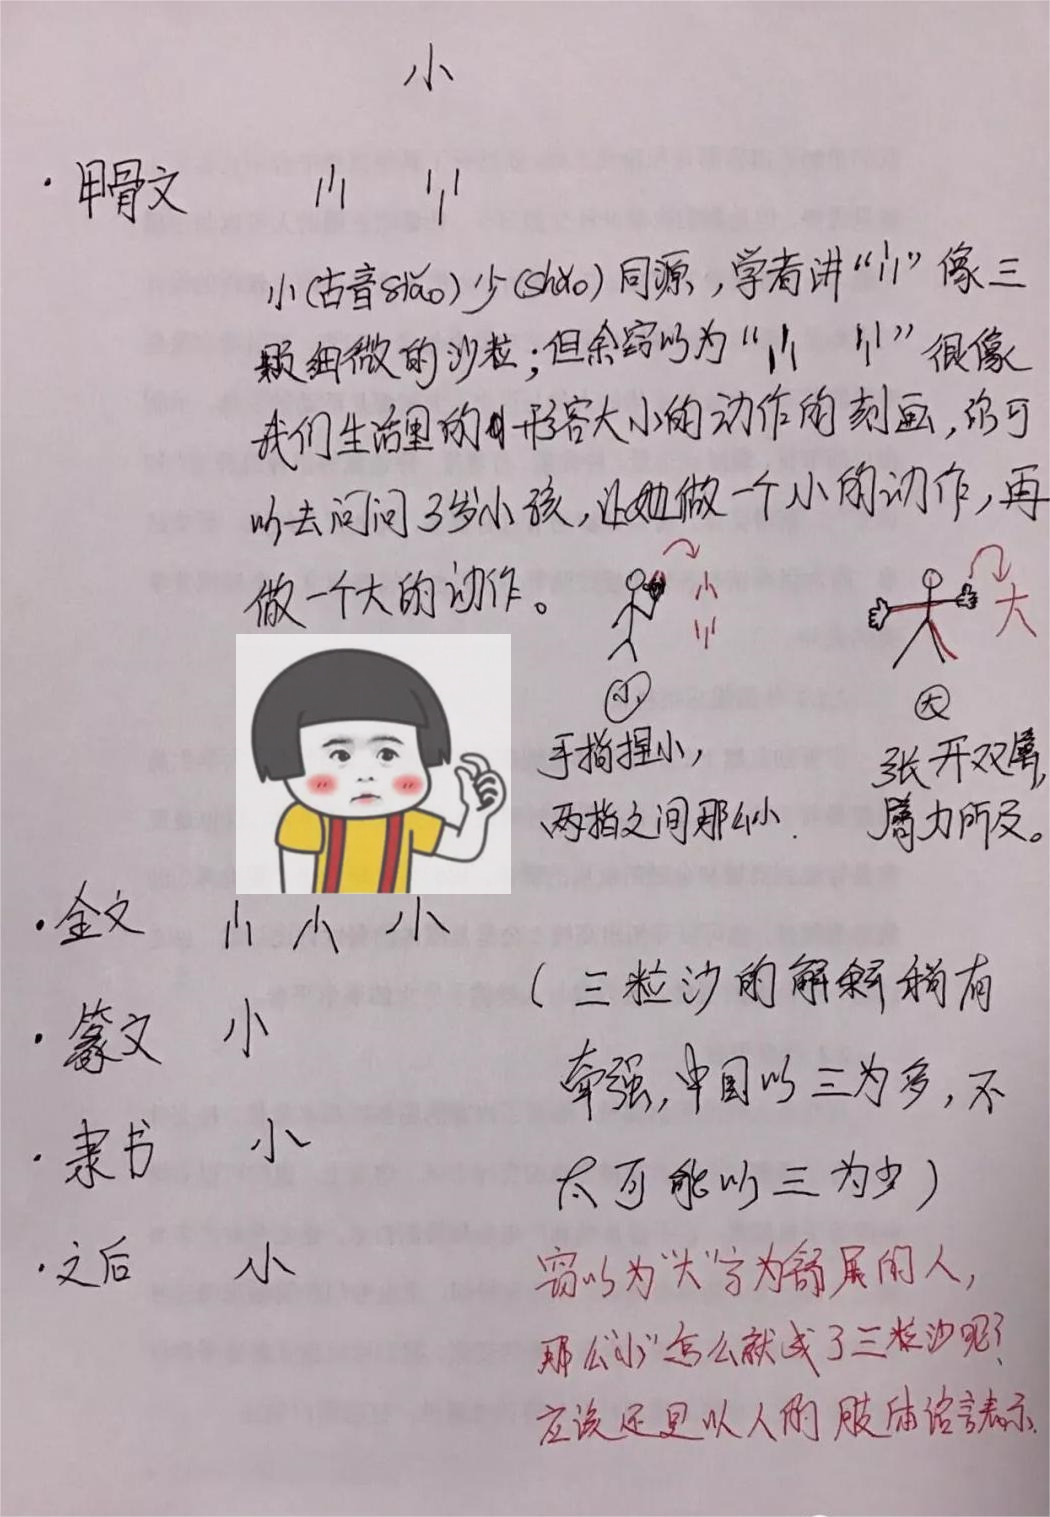 小
·甲骨文
小(古音siɑo)少(shɑo)同源,学者讲“小”像三
颗细微的沙粒;但余窃以为“小 小”很像
我们生活里的形容大小的动作的刻画,你可
以去问问3岁小孩,让她做一个小的动作,再
做一个大的动作。
小
大
小
大
手指捏小,
两指之间那么小.
张开双臂,
臂力所及。
·金文 小 小 小
(三粒沙的解释稍有
·篆文 小
牵强,中国以三为多,不
·隶书 小
太可能以三为少)
·之后 小
窃以为“大”字为舒展的人,
那么“小”怎么就成了三粒沙呢?
应该还是以人的肢体语言表示.